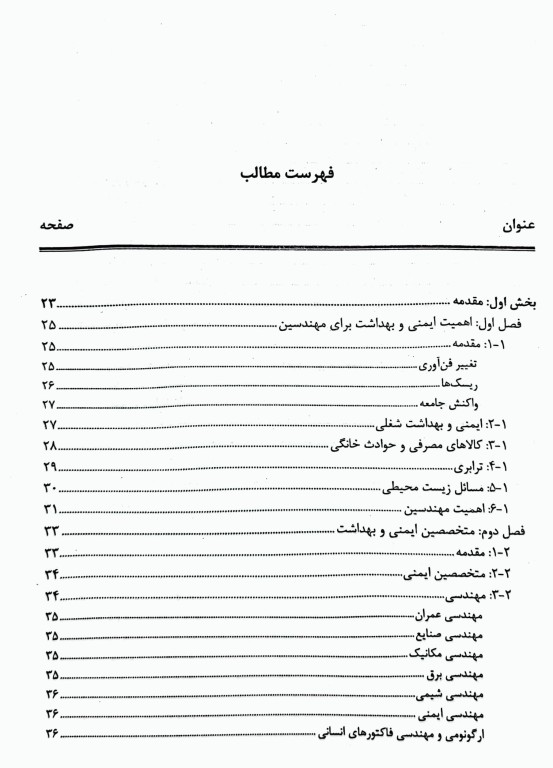 فهرست مطالب
عنوان صفحه
بخش اول: مقدمه ........ ۲۳
فصل اول: اهمیت ایمنی و بهداشت برای مهندسین ........ ۲۵
۱-۱: مقدمه ........ ۲۵
تغییر فن‌آوری ........ ۲۵
ریسک‌ها ........ ۲۶
واکنش جامعه ........ ۲۷
۱-۲: ایمنی و بهداشت شغلی ........ ۲۷
۱-۳: کالاهای مصرفی و حوادث خانگی ........ ۲۸
۱-۴: ترابری ........ ۲۹
۱-۵: مسائل زیست محیطی ........ ۳۰
۱-۶: اهمیت مهندسین ........ ۳۱
فصل دوم: متخصصین ایمنی و بهداشت ........ ۳۳
۲-۱: مقدمه ........ ۳۳
۲-۲: متخصصین ایمنی ........ ۳۴
۲-۳: مهندسی ........ ۳۴
مهندسی عمران ........ ۳۵
مهندسی صنایع ........ ۳۵
مهندسی مکانیک ........ ۳۵
مهندسی برق ........ ۳۵
مهندسی شیمی ........ ۳۶
مهندسی ایمنی ........ ۳۶
ارگونومی و مهندسی فاکتورهای انسانی ........ ۳۶